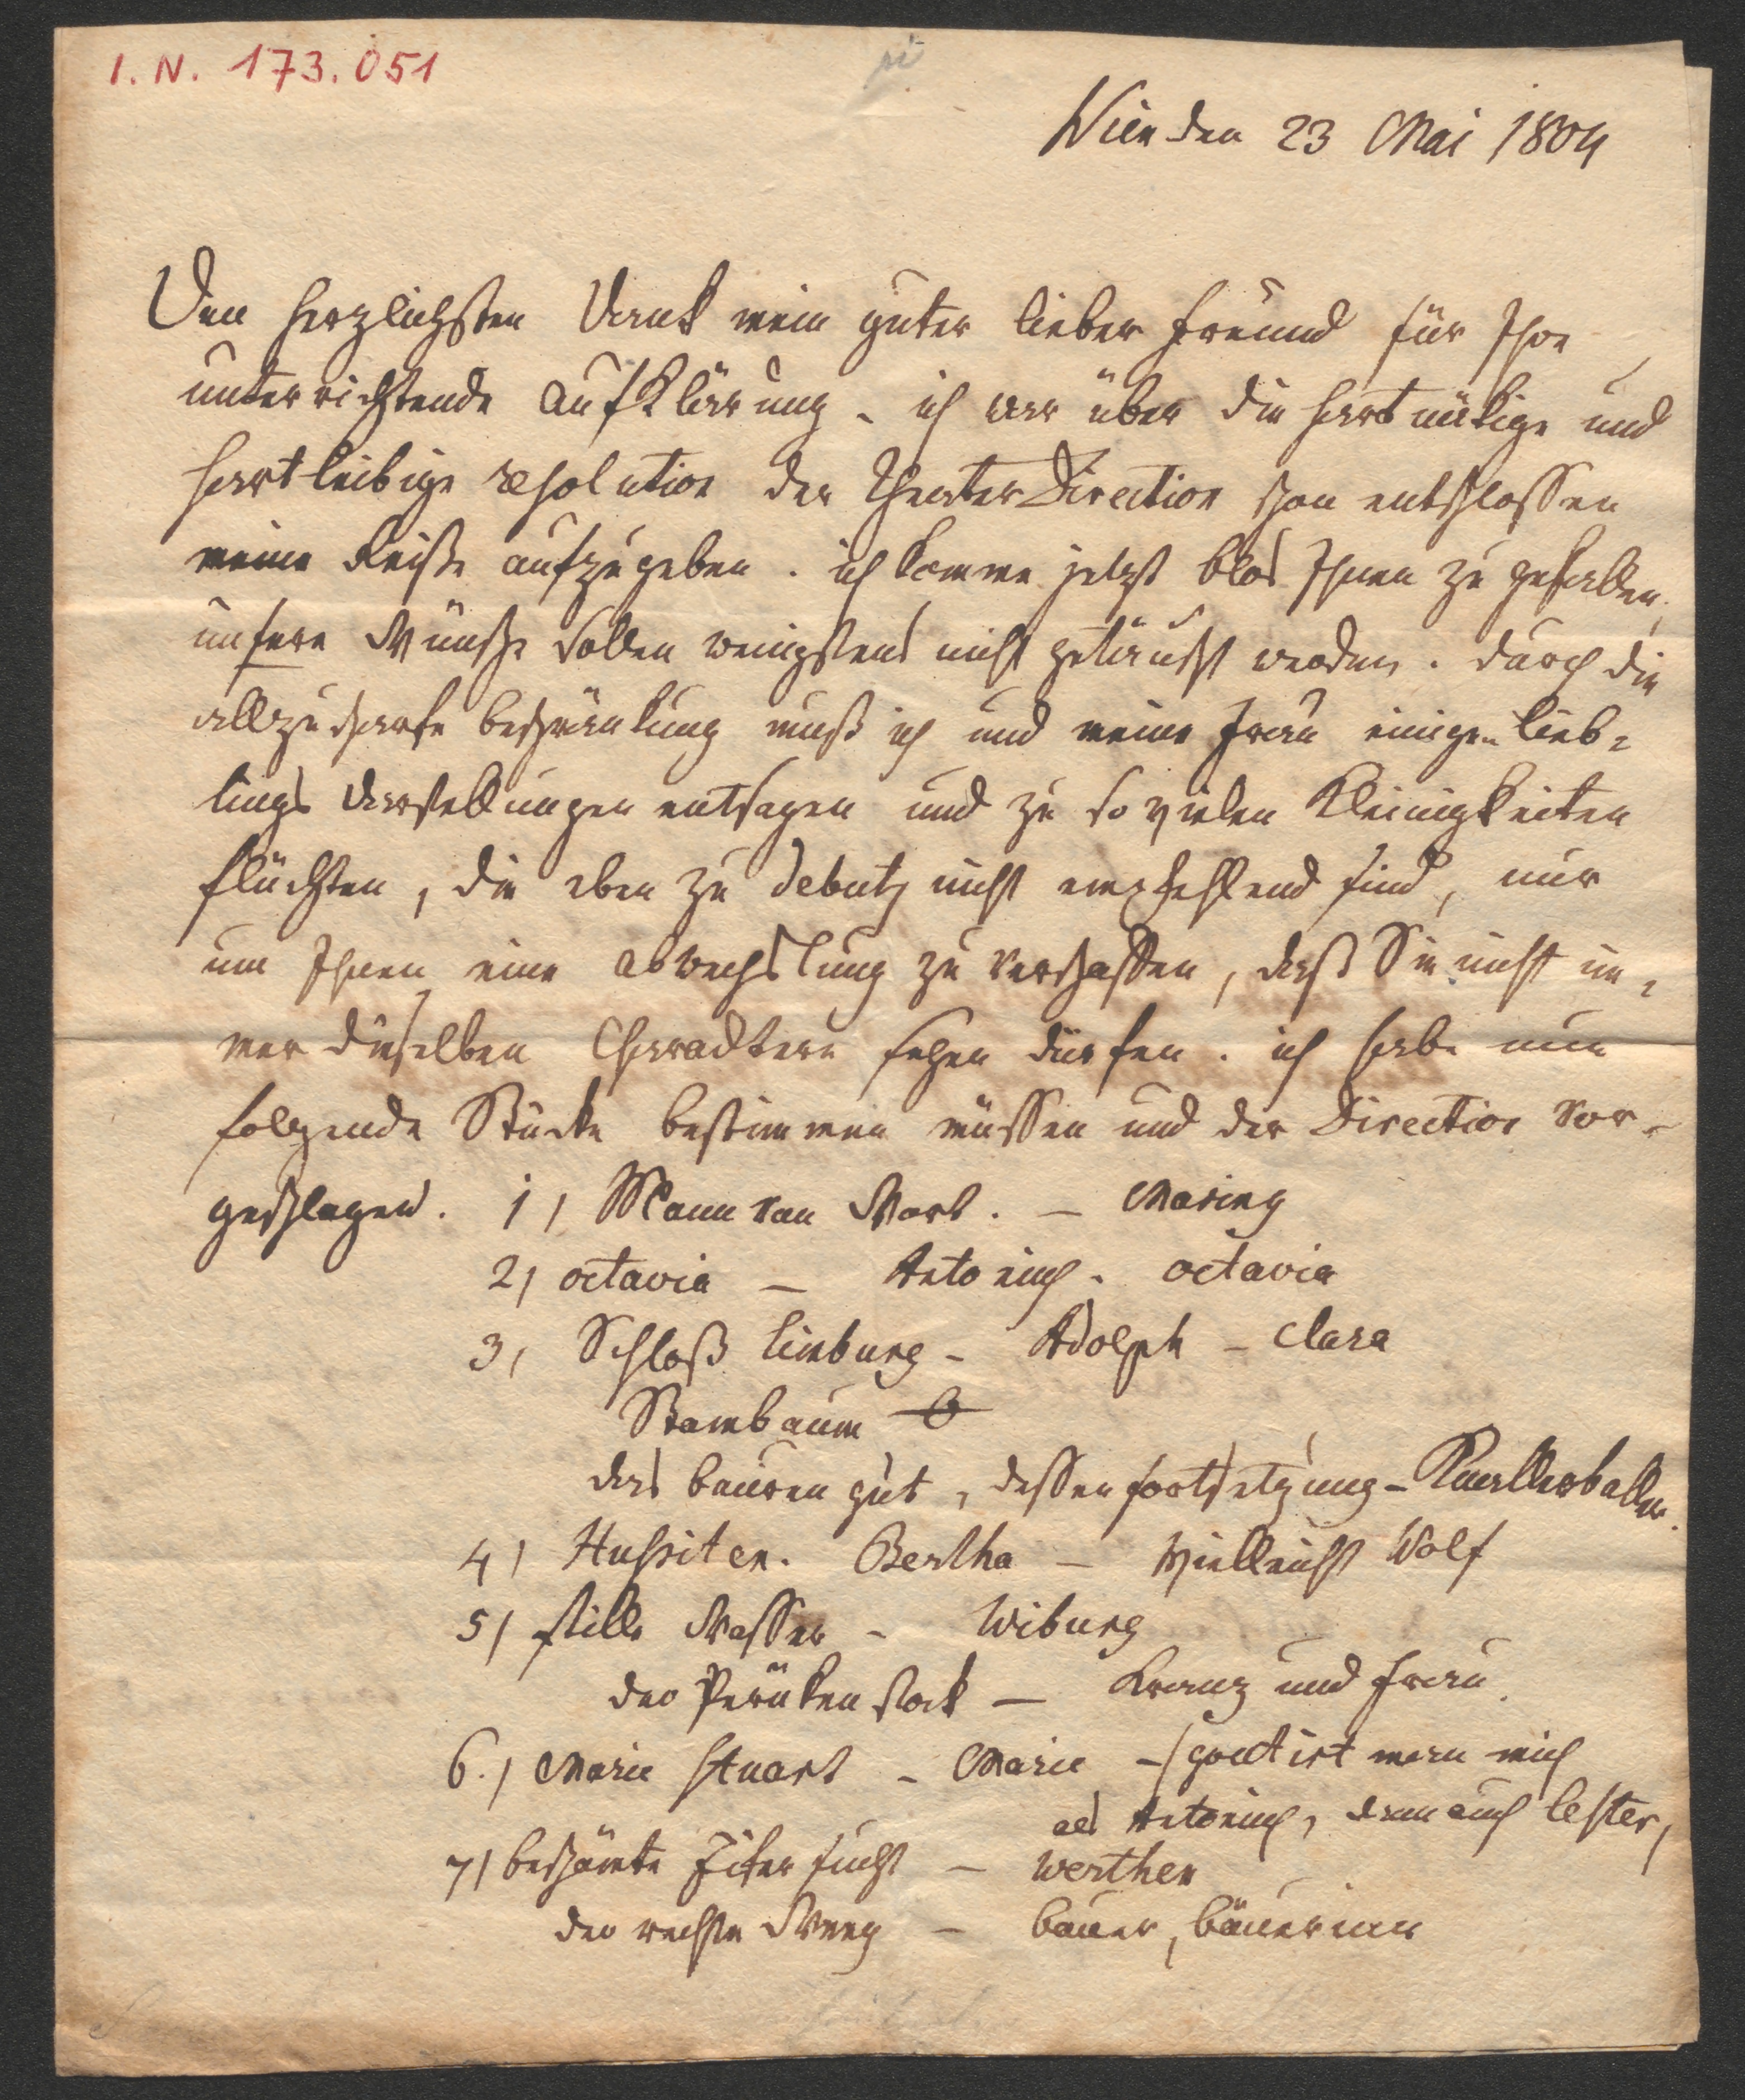 I. N. 173.051
Wien den 23 Mai 1804
Den herzlichsten Dank mein guter lieber Freund für Ihre
unterrichtende Aufklärung – ich war über die hartnäkige und
hartleibige resolution der Theater Direction schon entschlossen
meine Reise aufzugeben. ich komme jetzt blos Ihnen zu gefallen,
unsere Wünsche sollen wenigstens nicht getäuscht werden. durch die
allzuscharfe beschränkung muß ich und meine Frau einigen lieb-
lings darstellungen entsagen und zu so vielen Kleinigkeiten
flüchten, die eben zu debuts nicht empfehlend sind, nur
um Ihnen eine abwechslung zu verschaffen, daß Sie nicht im-
mer dieselben Charactere sehen dürfen. ich habe nun
folgende Stücke bestimmen müssen und der Direction vor-
geschlagen. 1) Mann von Wort. – Masing
2) octavia – Antonius. octavia
3, Schloß Limburg – Adolph – Clara
Stambaum
das bauren gut, dessen fortsetzung – Knallerballer.
4) Hussiten. Bertha – vielleicht Wolf
5) stille Wasser – Wiburg
der Perükenstock – Kranz und Frau.
6.) Marie Stuart – Marie – (goutirt man mich
als Antonius, dann auch lester)
7) beschämte Eifersucht – Werthen
der rechte Weeg – bauer, bäuerinn